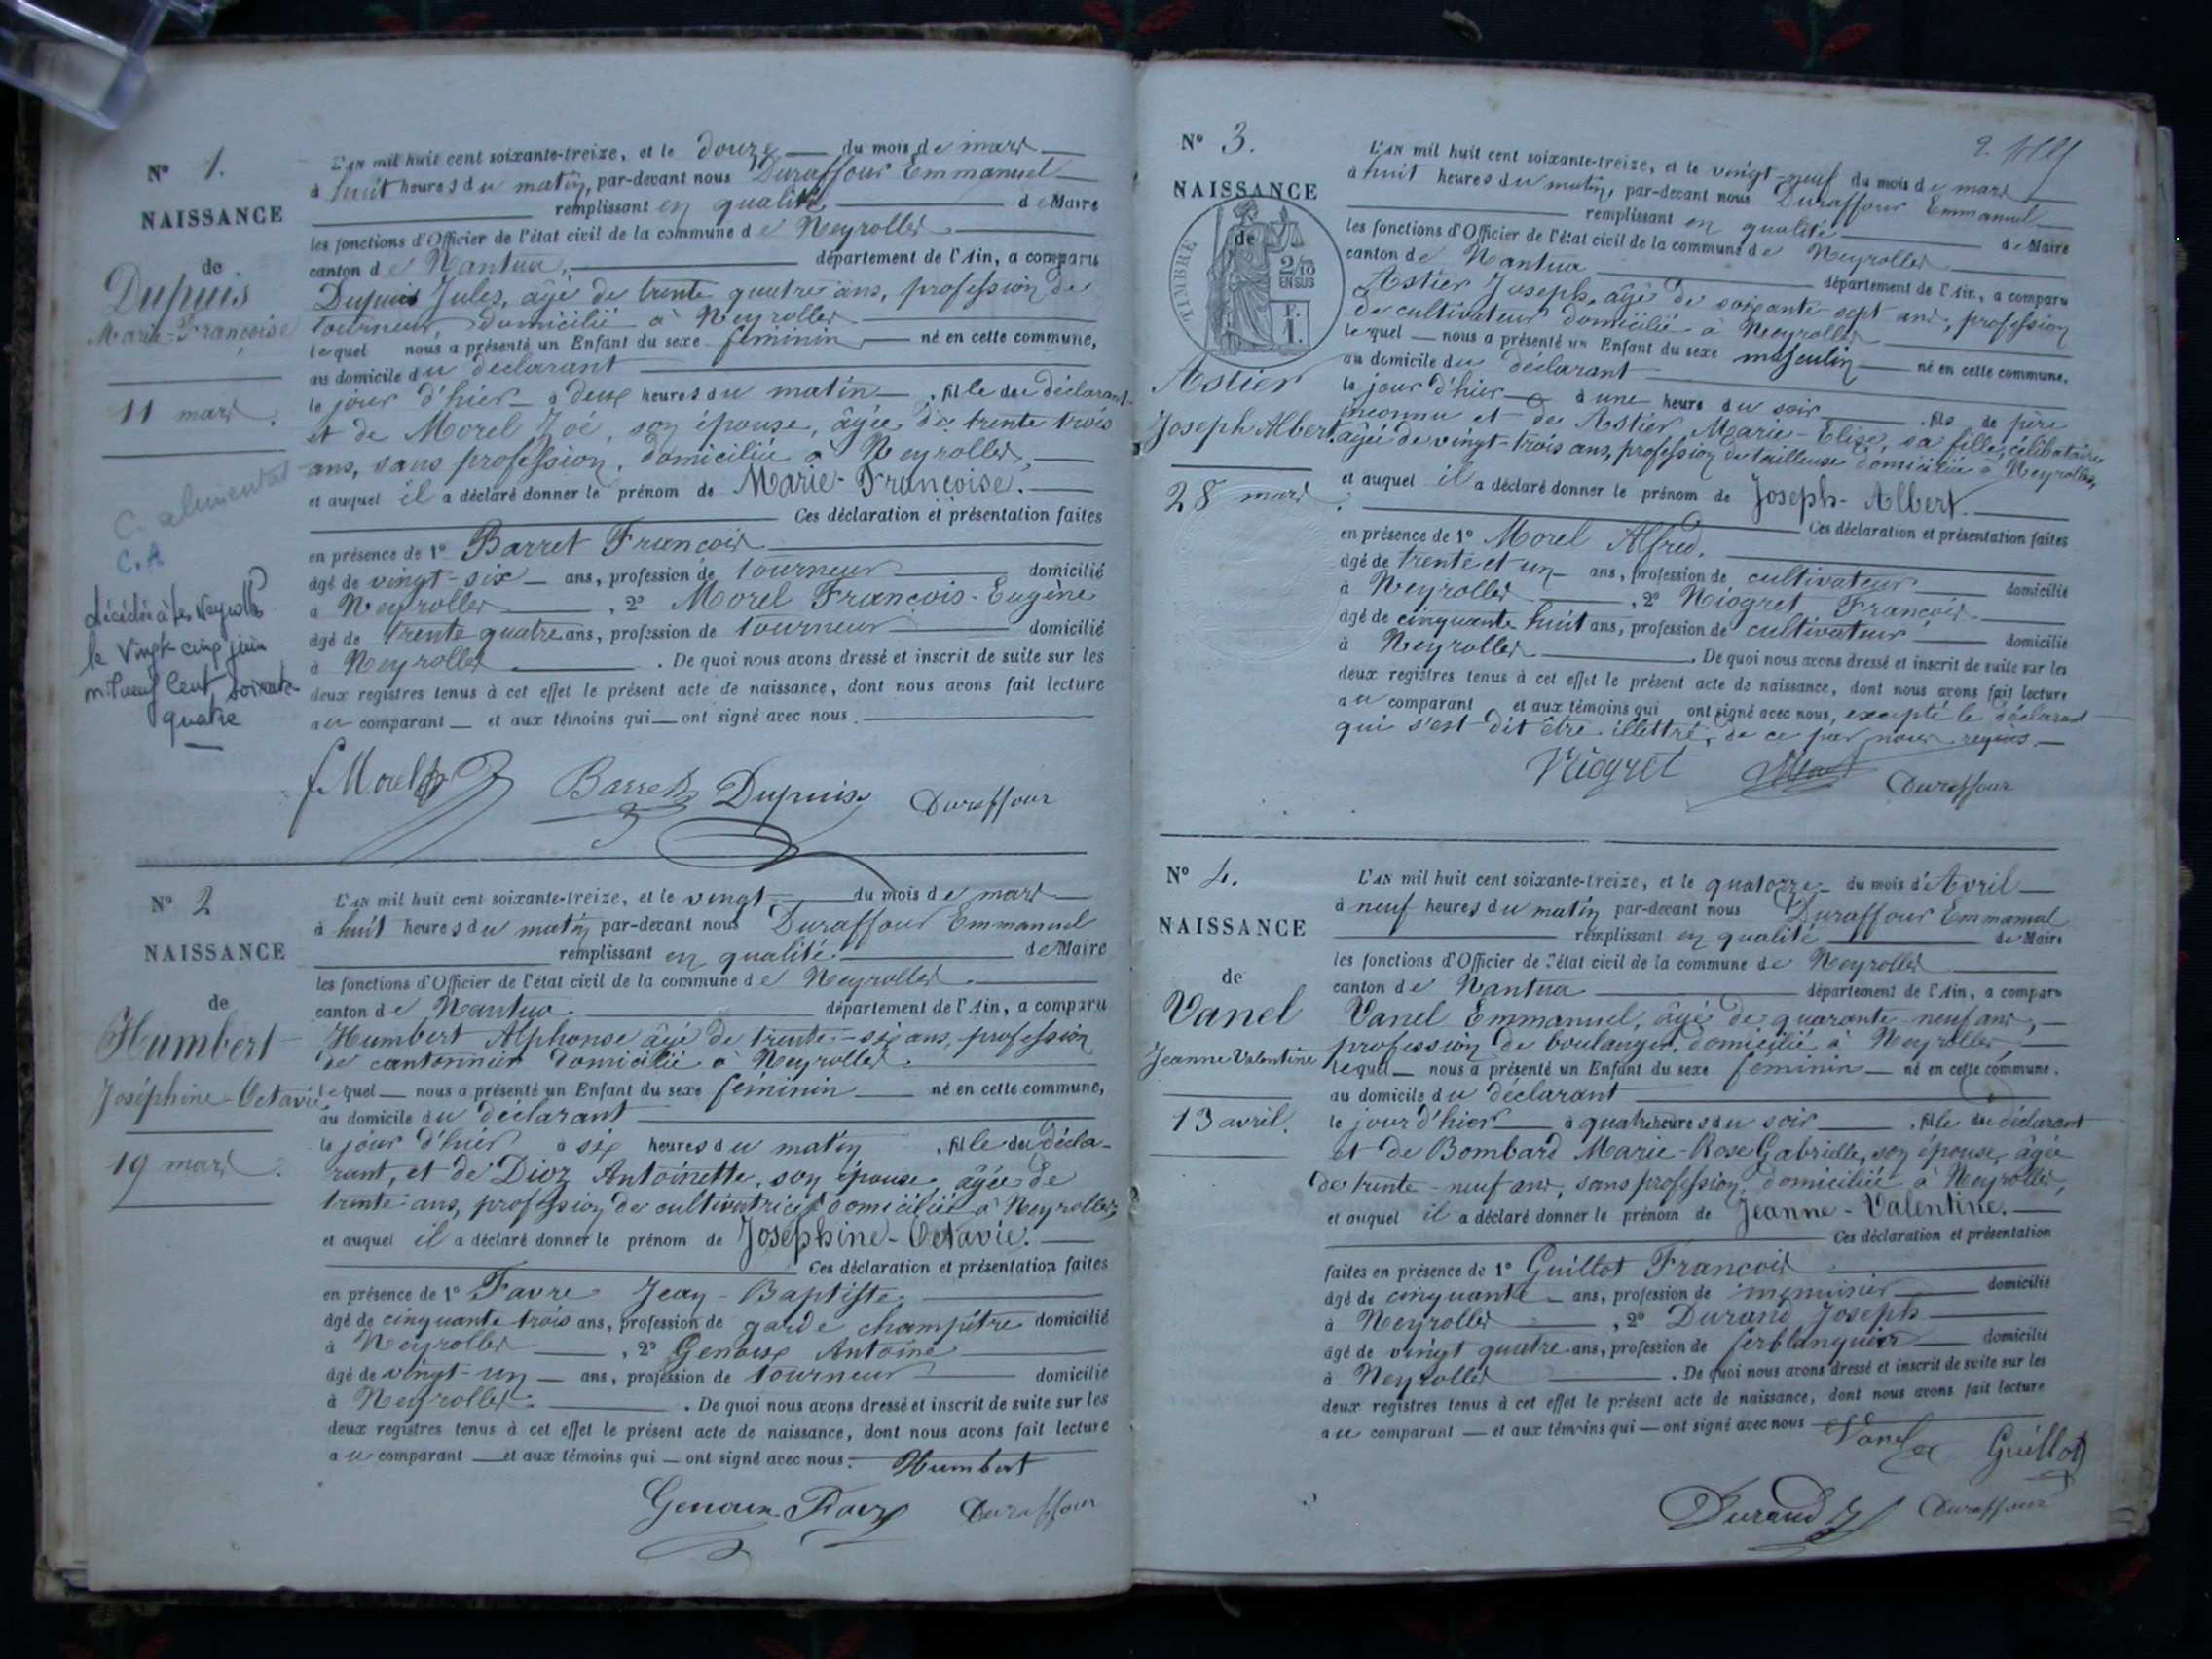 N° 1.
NAISSANCE
de
Dupuis
Marie-Françoise
11 mars.
C.A
décédée à Les Neyrolles
le vingt cinq juin
mil neuf cent soixante-
quatre
L'AN mil huit cent soixante-treize, et le douze du mois de mars
à huit heures du matin, par-devant nous Duraffour Emmanuel
remplissant en qualité de Maire
les fonctions d'Officier de l'état civil de la commune de Neyrolles
canton de Nantua, département de l'Ain, a comparu
Dupuis Jules, âgé de trente quatre ans, profession de
tourneur, domicilié à Neyrolles
lequel nous a présenté un Enfant du sexe féminin né en cette commune,
au domicile du déclarant
le jour d'hier à deux heures du matin, fille du déclarant
et de Morel Zoé, son épouse, âgée de trente trois
ans, sans profession, domiciliée à Neyrolles,
et auquel il a déclaré donner le prénom de Marie-Françoise.
Ces déclaration et présentation faites
en présence de 1° Barret François
âgé de vingt-six ans, profession de tourneur domicilié
à Neyrolles, 2° Morel François-Eugène
âgé de trente quatre ans, profession de tourneur domicilié
à Neyrolles. De quoi nous avons dressé et inscrit de suite sur les
deux registres tenus à cet effet le présent acte de naissance, dont nous avons fait lecture
au comparant et aux témoins qui ont signé avec nous.
f. Morel Barret Dupuis Duraffour
N° 2
NAISSANCE
de
Humbert
Joséphine-Octavie
19 mars.
L'AN mil huit cent soixante-treize, et le vingt du mois de mars
à huit heures du matin par-devant nous Duraffour Emmanuel
remplissant en qualité de Maire
les fonctions d'Officier de l'état civil de la commune de Neyrolles
canton de Nantua. département de l'Ain, a comparu
Humbert Alphonse âgé de trente-six ans, profession
de cantonnier domicilié à Neyrolles.
lequel nous a présenté un Enfant du sexe féminin né en cette commune,
au domicile du déclarant
le jour d'hier à six heures du matin, fille du décla-
rant, et de Dioz Antoinette, son épouse, âgée de
trente ans, profession de cultivatrice domiciliée à Neyrolles,
et auquel il a déclaré donner le prénom de Joséphine-Octavie.
Ces déclaration et présentation faites
en présence de 1° Favre Jean-Baptiste
âgé de cinquante trois ans, profession de garde champêtre domicilié
à Neyrolles, 2° Genoux Antoine
âgé de vingt-un ans, profession de tourneur domicilié
à Neyrolles. De quoi nous avons dressé et inscrit de suite sur les
deux registres tenus à cet effet le présent acte de naissance, dont nous avons fait lecture
au comparant et aux témoins qui ont signé avec nous. Humbert
Genoux Favre Duraffour
2
N° 3.
NAISSANCE
de
TIMBRE
2/10
EN SUS
F.
1.
Astier
Joseph Albert
28 mars.
L'AN mil huit cent soixante-treize, et le vingt-neuf du mois de mars
à huit heures du matin, par-devant nous Duraffour Emmanuel
remplissant en qualité de Maire
les fonctions d'Officier de l'état civil de la commune de Neyrolles
canton de Nantua département de l'Ain, a comparu
Astier Joseph, âgé de soixante sept ans, profession
de cultivateur domicilié à Neyrolles
lequel nous a présenté un Enfant du sexe masculin né en cette commune,
au domicile du déclarant
le jour d'hier à une heure du soir, fils de père
inconnu et de Astier Marie-Elise, sa fille, célibataire
âgée de vingt-trois ans, profession de tailleuse domiciliée à Neyrolles,
et auquel il a déclaré donner le prénom de Joseph-Albert.
Ces déclaration et présentation faites
en présence de 1° Morel Alfred.
âgé de trente et un ans, profession de cultivateur domicilié
à Neyrolles, 2° Niogret François
âgé de cinquante huit ans, profession de cultivateur domicilié
à Neyrolles. De quoi nous avons dressé et inscrit de suite sur les
deux registres tenus à cet effet le présent acte de naissance, dont nous avons fait lecture
au comparant et aux témoins qui ont signé avec nous, excepté le déclarant
qui s'est dit être illettré, de ce par nous requis.
Niogret Duraffour
N° 4.
NAISSANCE
de
Vanel
Jeanne Valentine
13 avril.
L'AN mil huit cent soixante-treize, et le quatorze du mois d'Avril
à neuf heures du matin par-devant nous Duraffour Emmanuel
remplissant en qualité de Maire
les fonctions d'Officier de l'état civil de la commune de Neyrolles
canton de Nantua département de l'Ain, a comparu
Vanel Emmanuel, âgé de quarante-neuf ans,
profession de boulanger, domicilié à Neyrolles,
lequel nous a présenté un Enfant du sexe féminin né en cette commune.
au domicile du déclarant
le jour d'hier à quatre heures du soir, fille du déclarant
et de Bombard Marie-Rose Gabrielle, son épouse, âgée
de trente-neuf ans, sans profession, domiciliée à Neyrolles,
et auquel il a déclaré donner le prénom de Jeanne-Valentine.
Ces déclaration et présentation
faites en présence de 1° Guillot François
âgé de cinquante ans, profession de menuisier domicilié
à Neyrolles, 2° Durand Joseph
âgé de vingt quatre ans, profession de ferblanquier domicilié
à Neyrolles. De quoi nous avons dressé et inscrit de suite sur les
deux registres tenus à cet effet le présent acte de naissance, dont nous avons fait lecture
au comparant et aux témoins qui ont signé avec nous Vanel Guillot
Durand Duraffour